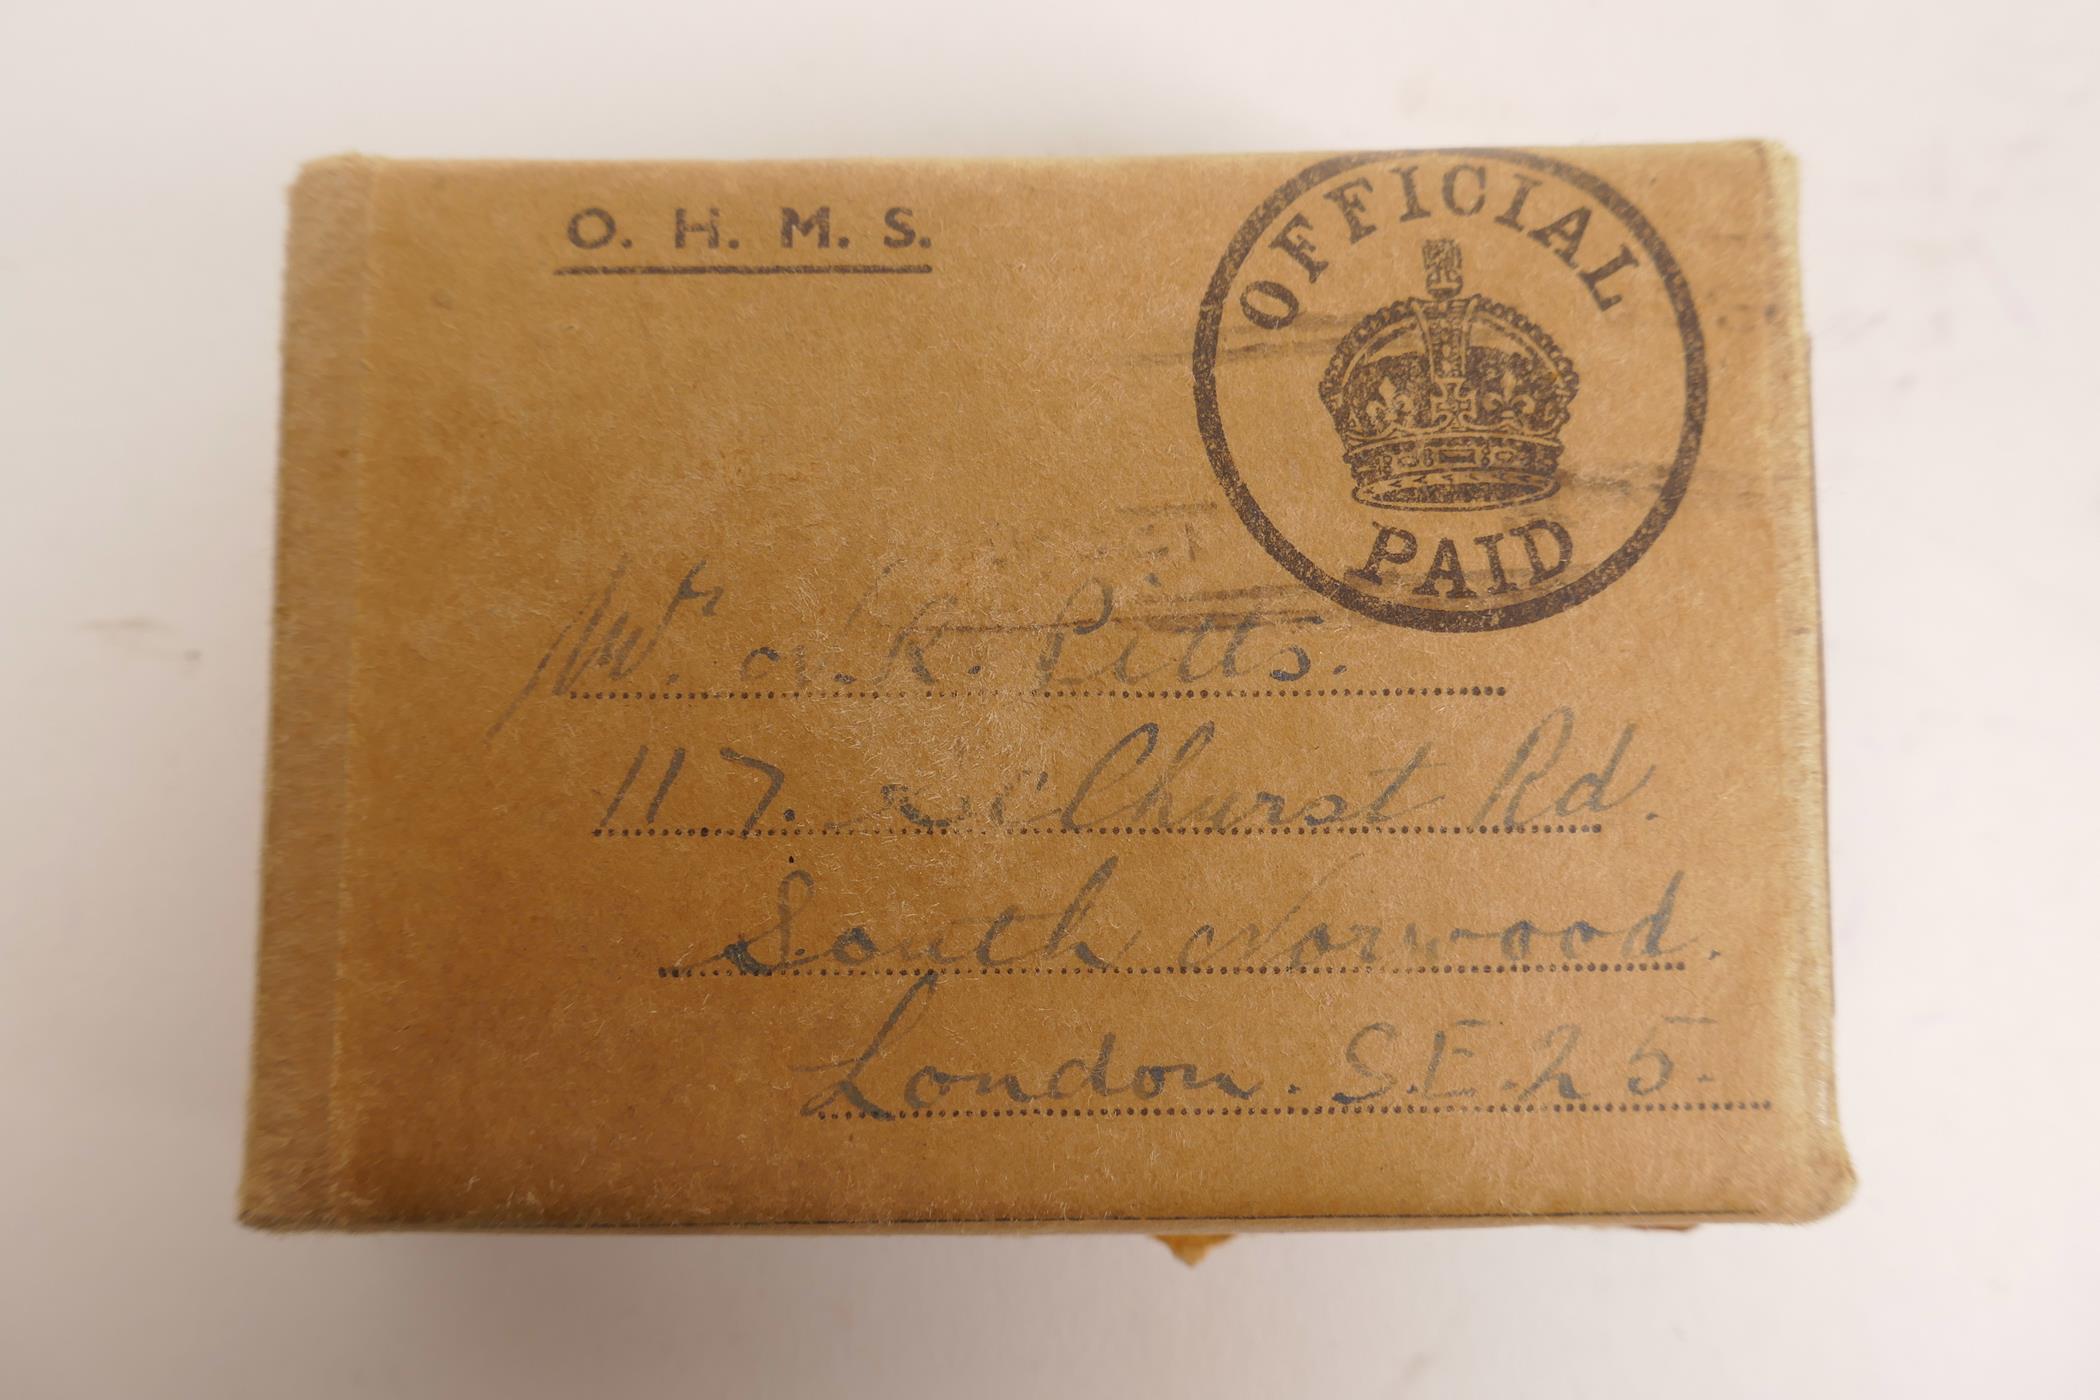 O. H. M. S.
OFFICIAL
PAID
Mr. A. K. Pitts.
117. Selhurst Rd.
South Norwood.
London. S.E. 25.